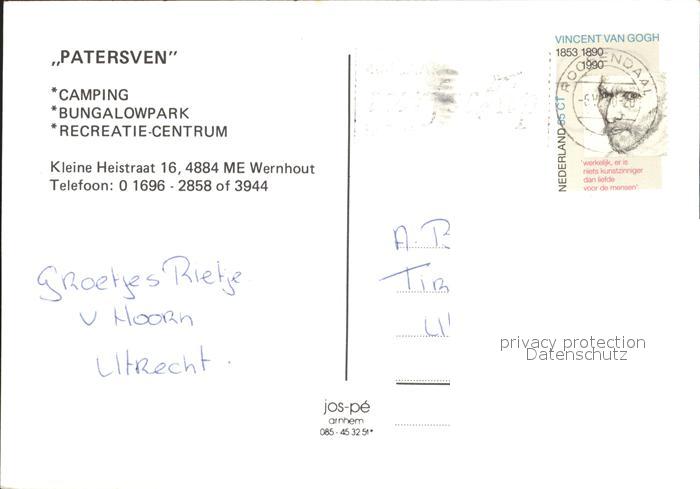 „PATERSVEN”
*CAMPING
*BUNGALOWPARK
*RECREATIE-CENTRUM
Kleine Heistraat 16, 4884 ME Wernhout
Telefoon: 0 1696 - 2858 of 3944
Groetjes Rietje
v Hoorn
Utrecht.
jos-pé
arnhem
085 - 45 32 51*
VINCENT VAN GOGH
1853 1890
1990
NEDERLAND 55 CT
ROOSENDAAL
'werkelijk, er is
niets kunstzinniger
dan liefde
voor de mensen'
A.
privacy protection
Datenschutz